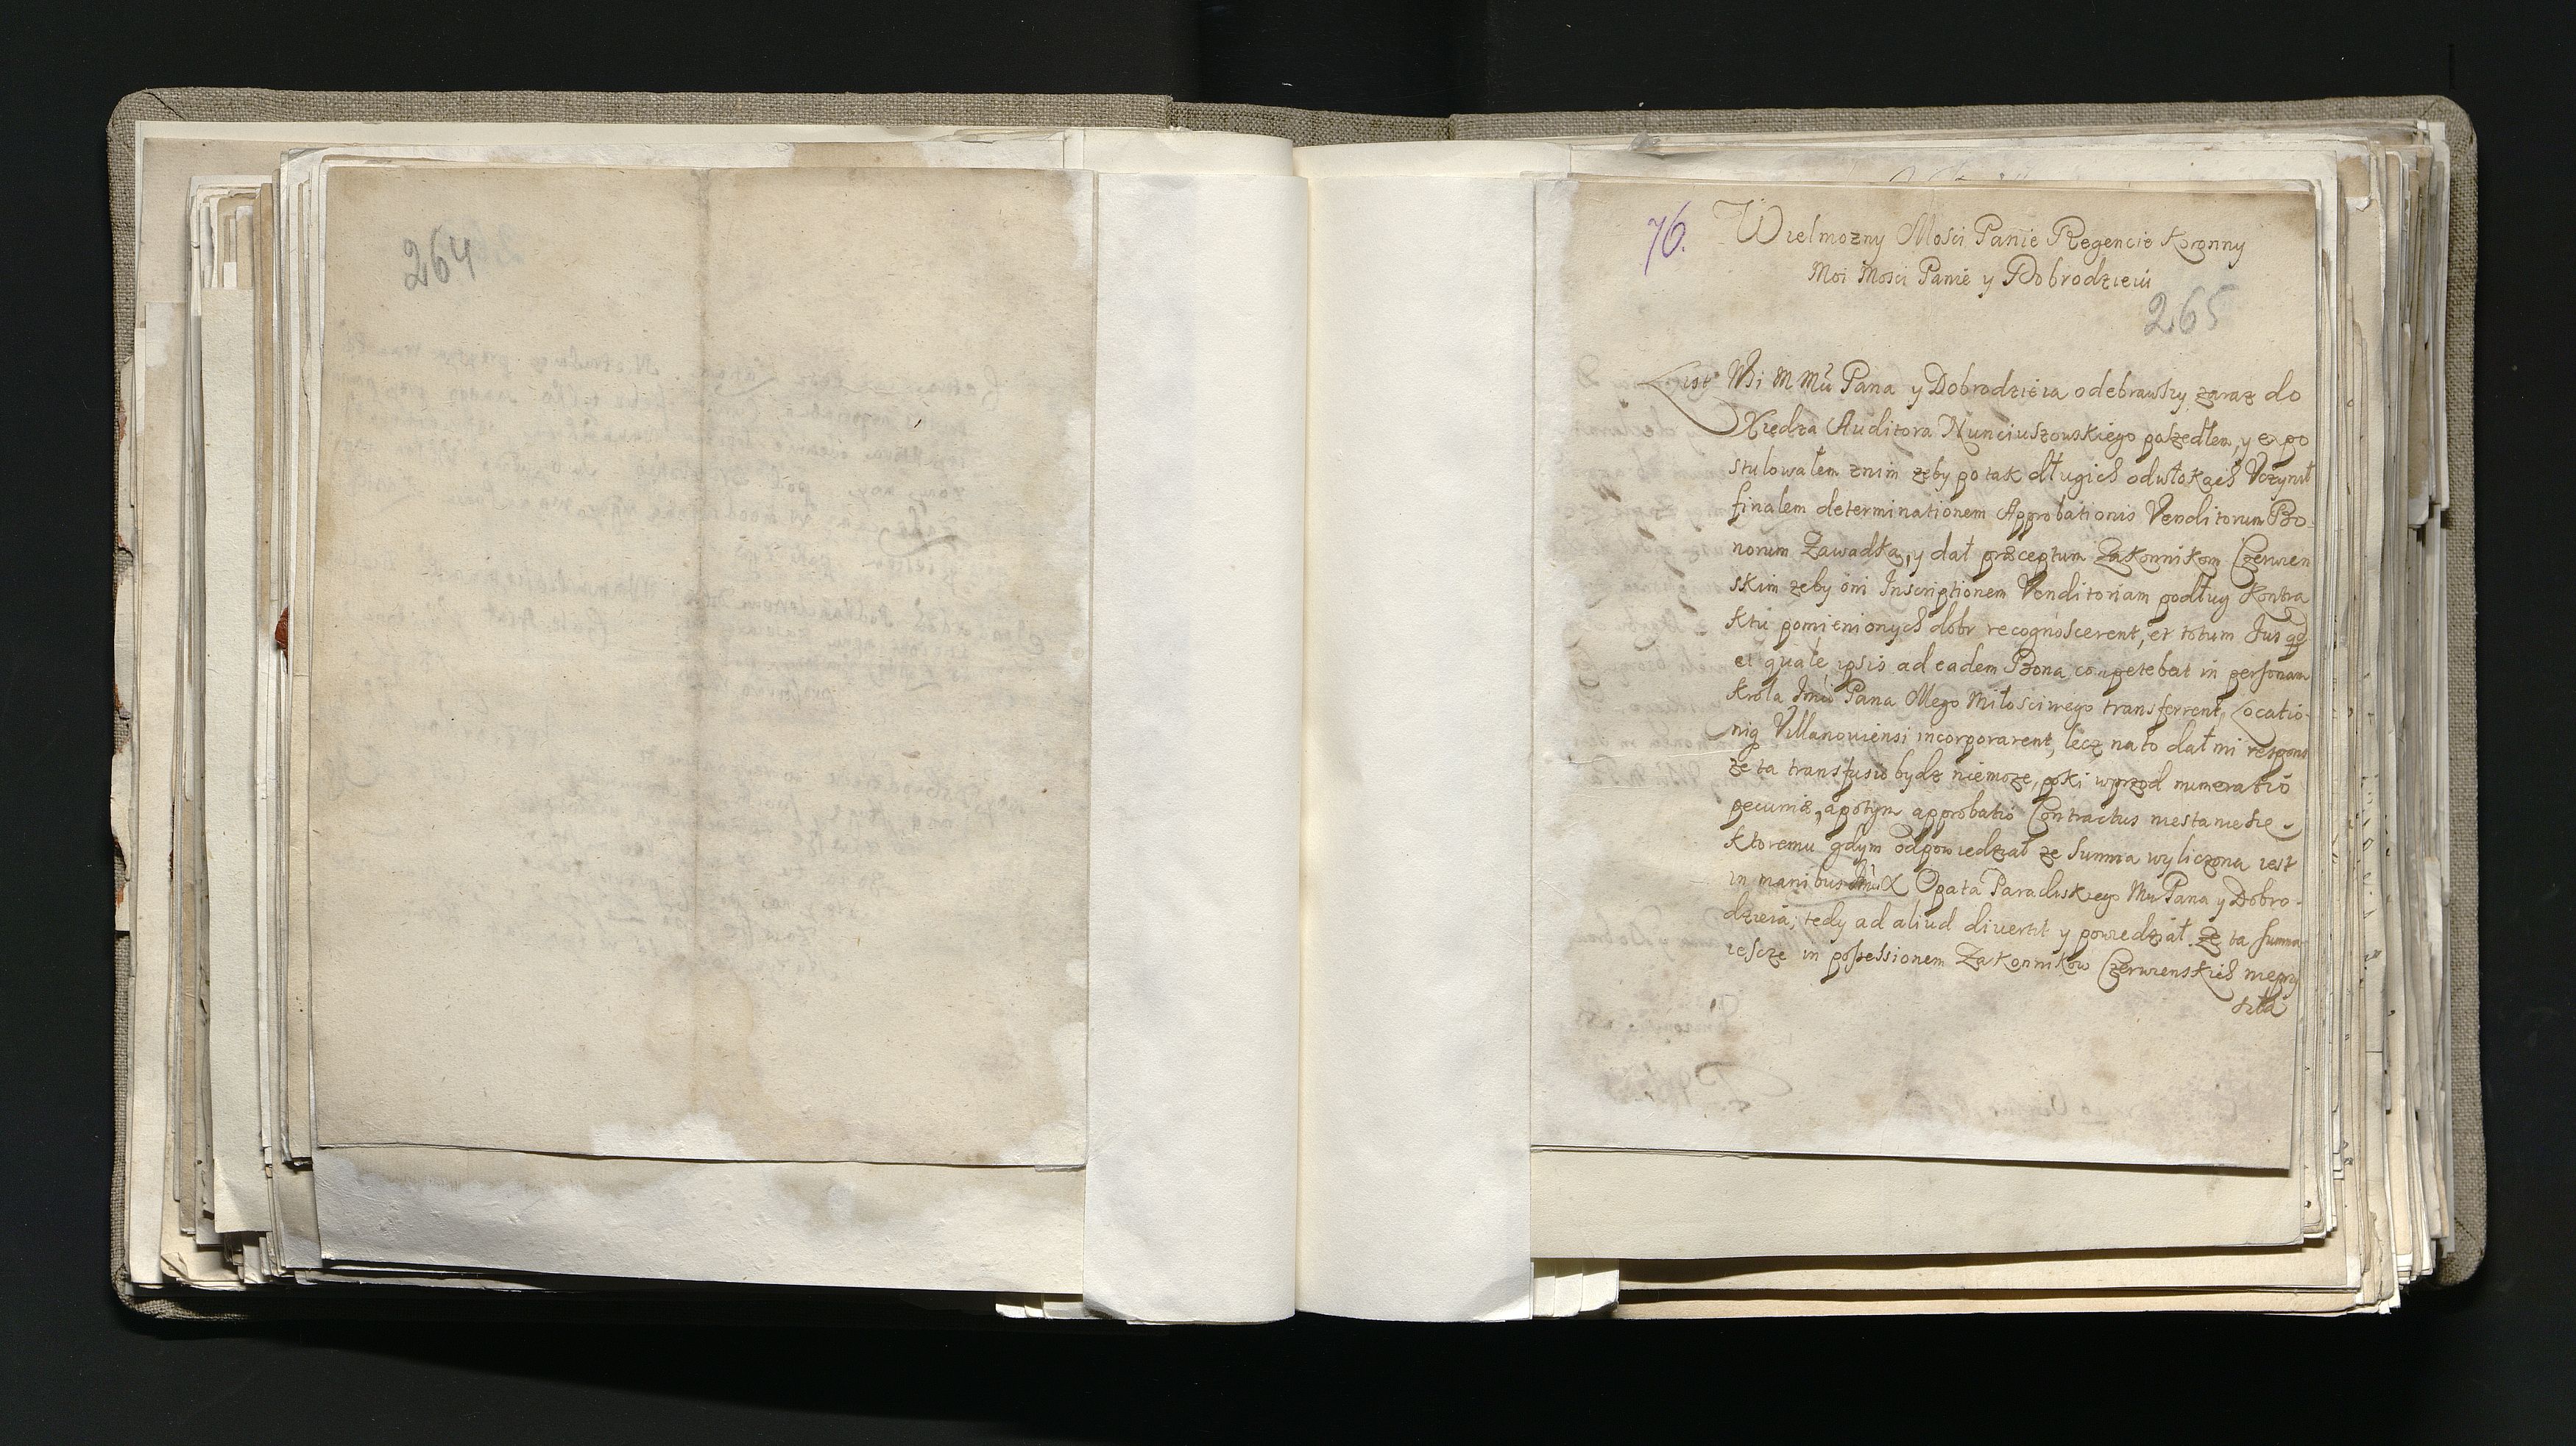 264
76.
Wielmozny Mosci Panie Regencie Koronny
Moi Mosci Panie y Dobrodzieiu
265
List Wi M Mu Pana y Dobrodzieia odebrawszy zaraz do
Xiędza Auditora Nunciuszowskiego poszedłem, y expo
stulowałem znim zeby po tak długich odwłokach Vczynił
finalem determinationem Approbationis Venditorum Bo-
norum Zawadka, y dał præceptum Zakonnikom Czerwen
skim zeby oni Inscriptionem Venditoriam podług Kontra
ktu pomienionych dobr recognoscerent, et totum Jus qd
et quale ipsis ad eadem Bona competebat in personam
Krola Jmci Pana Mego Miłosciwego transferrent, Locatio-
nią Villanoviensi incorporarent, lecz na to dał mi respons
ze ta transfusio bydz niemoze, poki wprzod numeratio
pecuniæ, apotym approbatio Contractus niestanie sie.
Ktoremu gdym odpowiedział ze Summa wyliczona iest
in manibus X Opata Paradiskiego Mu Pana y Dobro-
dzieia; tedy ad aliud divertit y powiedział. Ze ta summa
iescze in possessionem Zakonnikow Czerwenskich nieprzy
szła